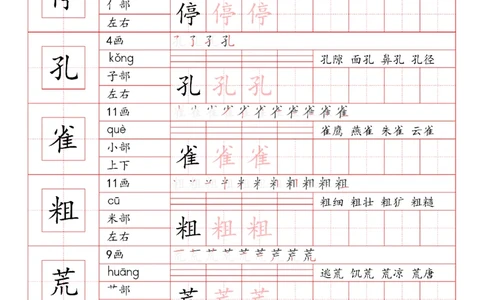 停 亻部 停 停 停
左右
孔 4画 孔
kǒng 孔隙 面孔 鼻孔 孔径
子部 孔 孔 孔
左右
雀 11画 雀
què 雀鹰 燕雀 朱雀 云雀
小部 雀 雀 雀
上下
粗 11画 粗
cū 粗细 粗壮 粗犷 粗糙
米部 粗 粗 粗
左右
荒 9画 荒
huāng 逃荒 饥荒 荒凉 荒唐
艹部 荒 荒 荒